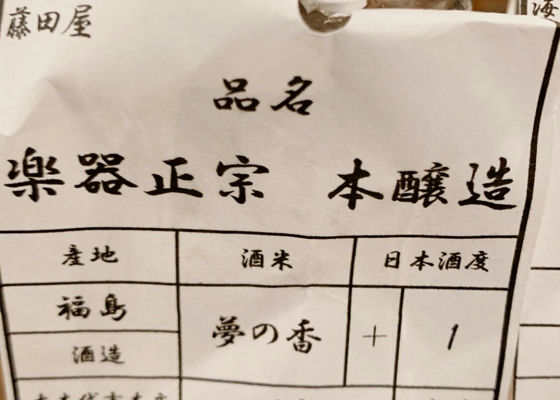 藤田屋
品名
楽器正宗 本醸造
産地 酒米 日本酒度
福島 夢の香 + 1
酒造